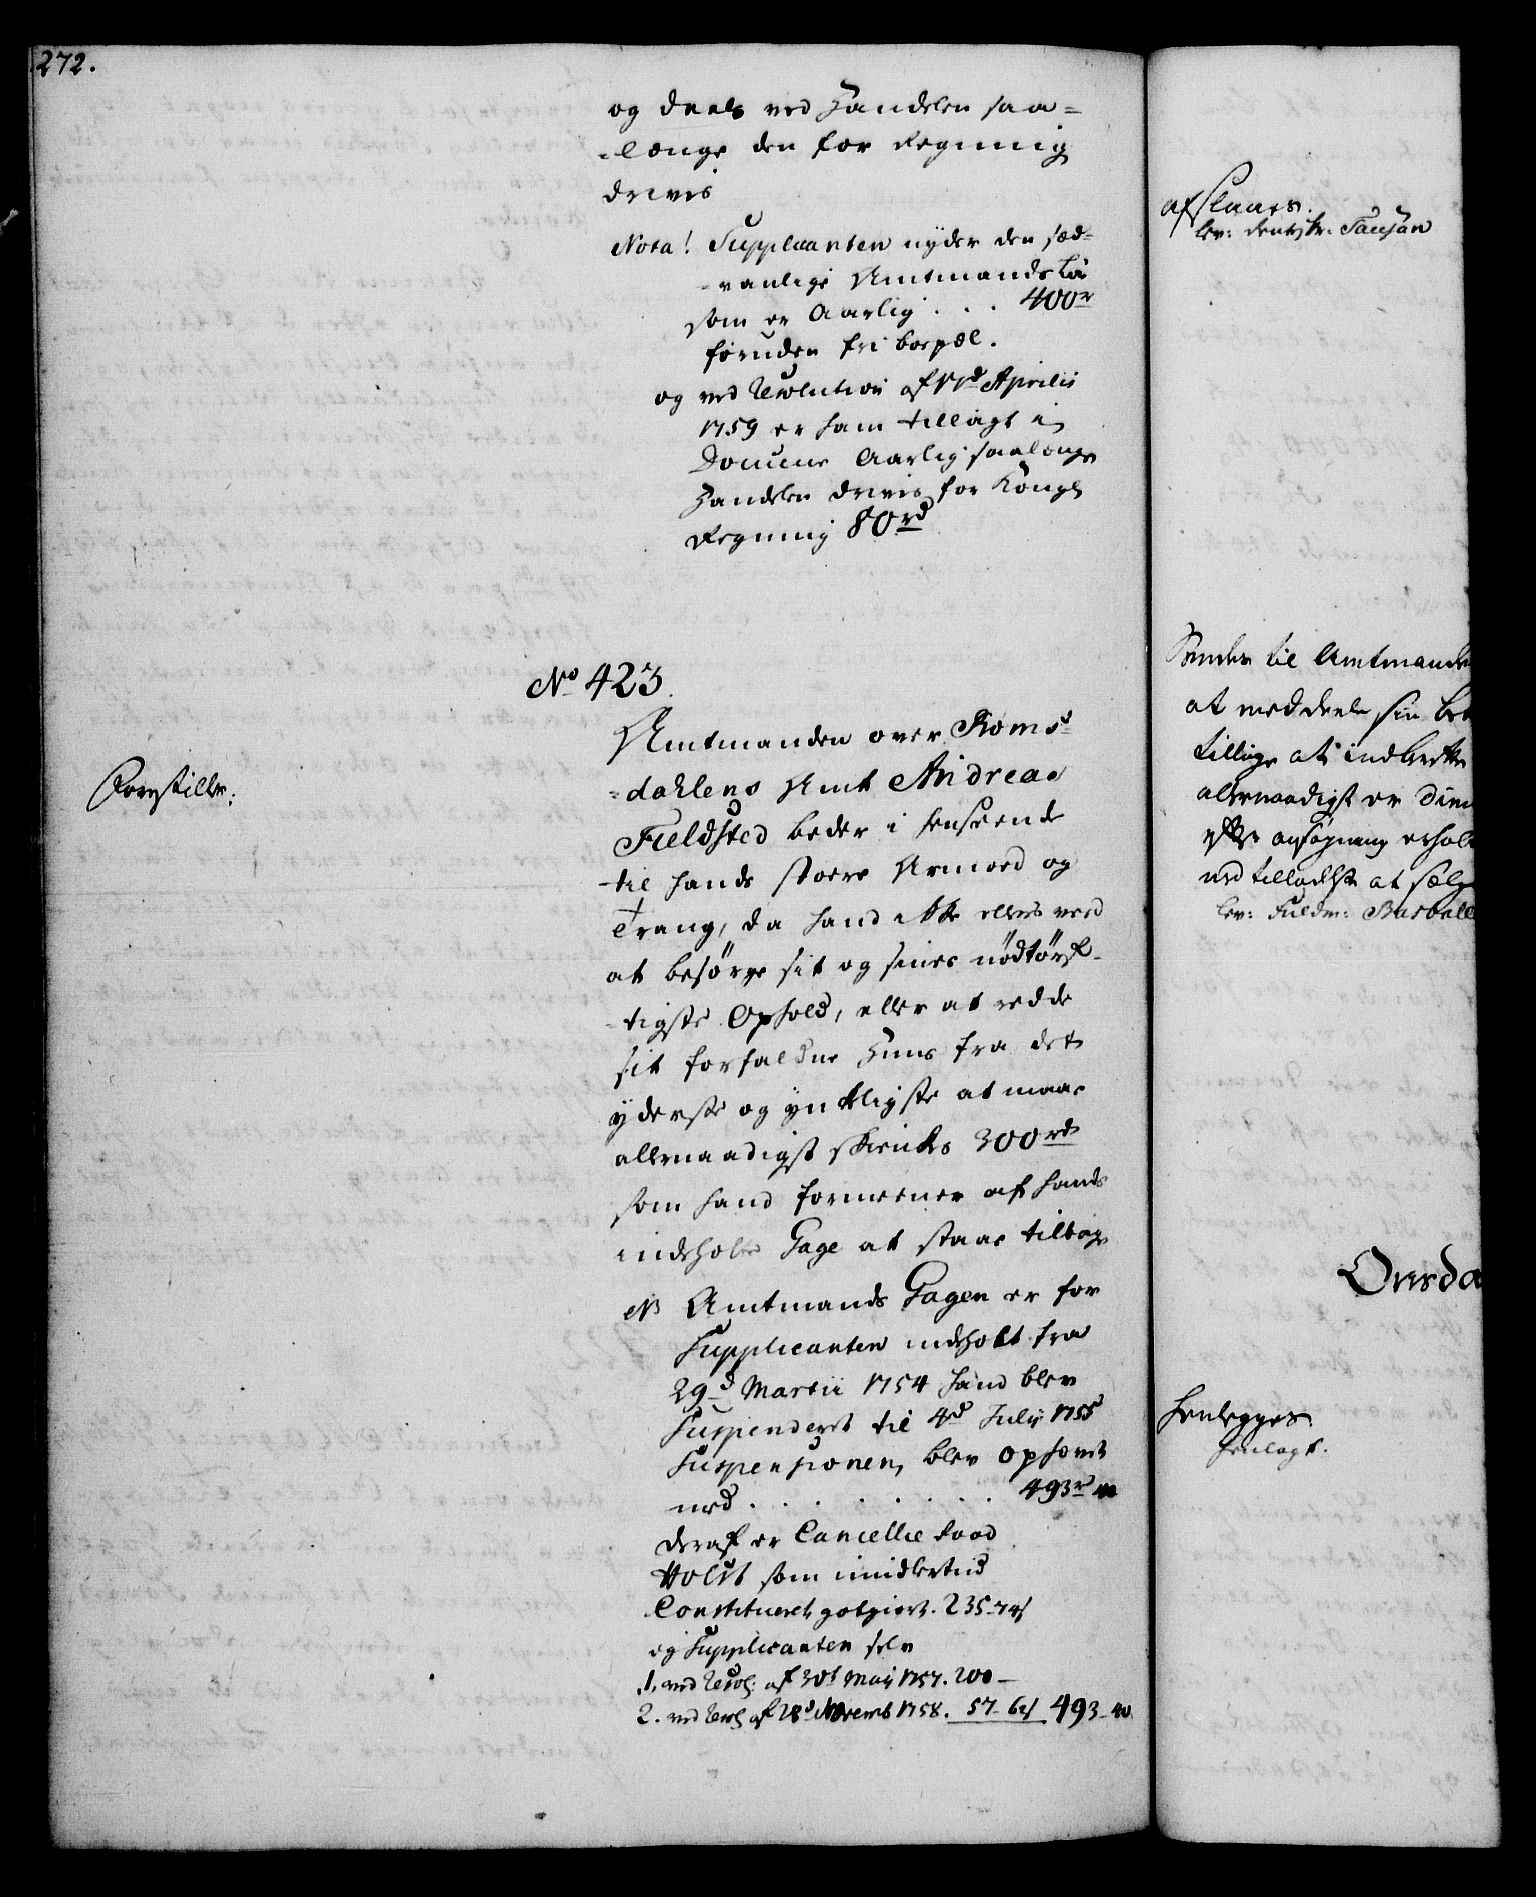 272.
og deels ved Handelen saa=
=længe den for Regning
drives
Nota! Supplicanten nyder den sæd=
=vanlige Amtmands Løn
som er Aarlig . . . 400r
foruden fri boepæl.
og ved Resolution af 11d Aprilii
1759 er ham tillagt i
Douceur Aarlig saalænge
Handelen drives for Kongl
Regning 80rd
No 423.
Forestilles:
Amtmanden over Roms=
=dahlens Amt Andreas
Fieldsted beder i henseende
til hands stoere Armoed og
Trang, da hand ikke ellers veed
at besørge sit og sines nødtørf=
=tigste Ophold, eller at redde
sit forfaldne Huus fra det
yderste og ynkligste at maae
allernaadigst skienkes 300rd
som hand formeener af hands
indeholte Gage at staae tilbage
NB Amtmands Gagen er for
Supplicanten indeholt fra
29d Martii 1754 hand blev
Suspenderet til 4d Julii 1755
Suspensionen blev ophævet
med . . . . . . . 493r 40
deraf er Cancellie Raad
Holst som imidlertiid
Constitueret godtgiort. 235-74s
og Supplicanten selv
1, ved Resol: af 30t Maij 1757. 200 -
2. ved Resol af 28d Novemb 1758. 57- 62s 493- 40
afslaaes.
lev:
Sendes til Amtmanden
at meddeele sin
tillige at indberette
allernaadigst er
efter ansøgning
ved tilladelse at sælge
lev: Fuldm:
Henlegges
henlagt.